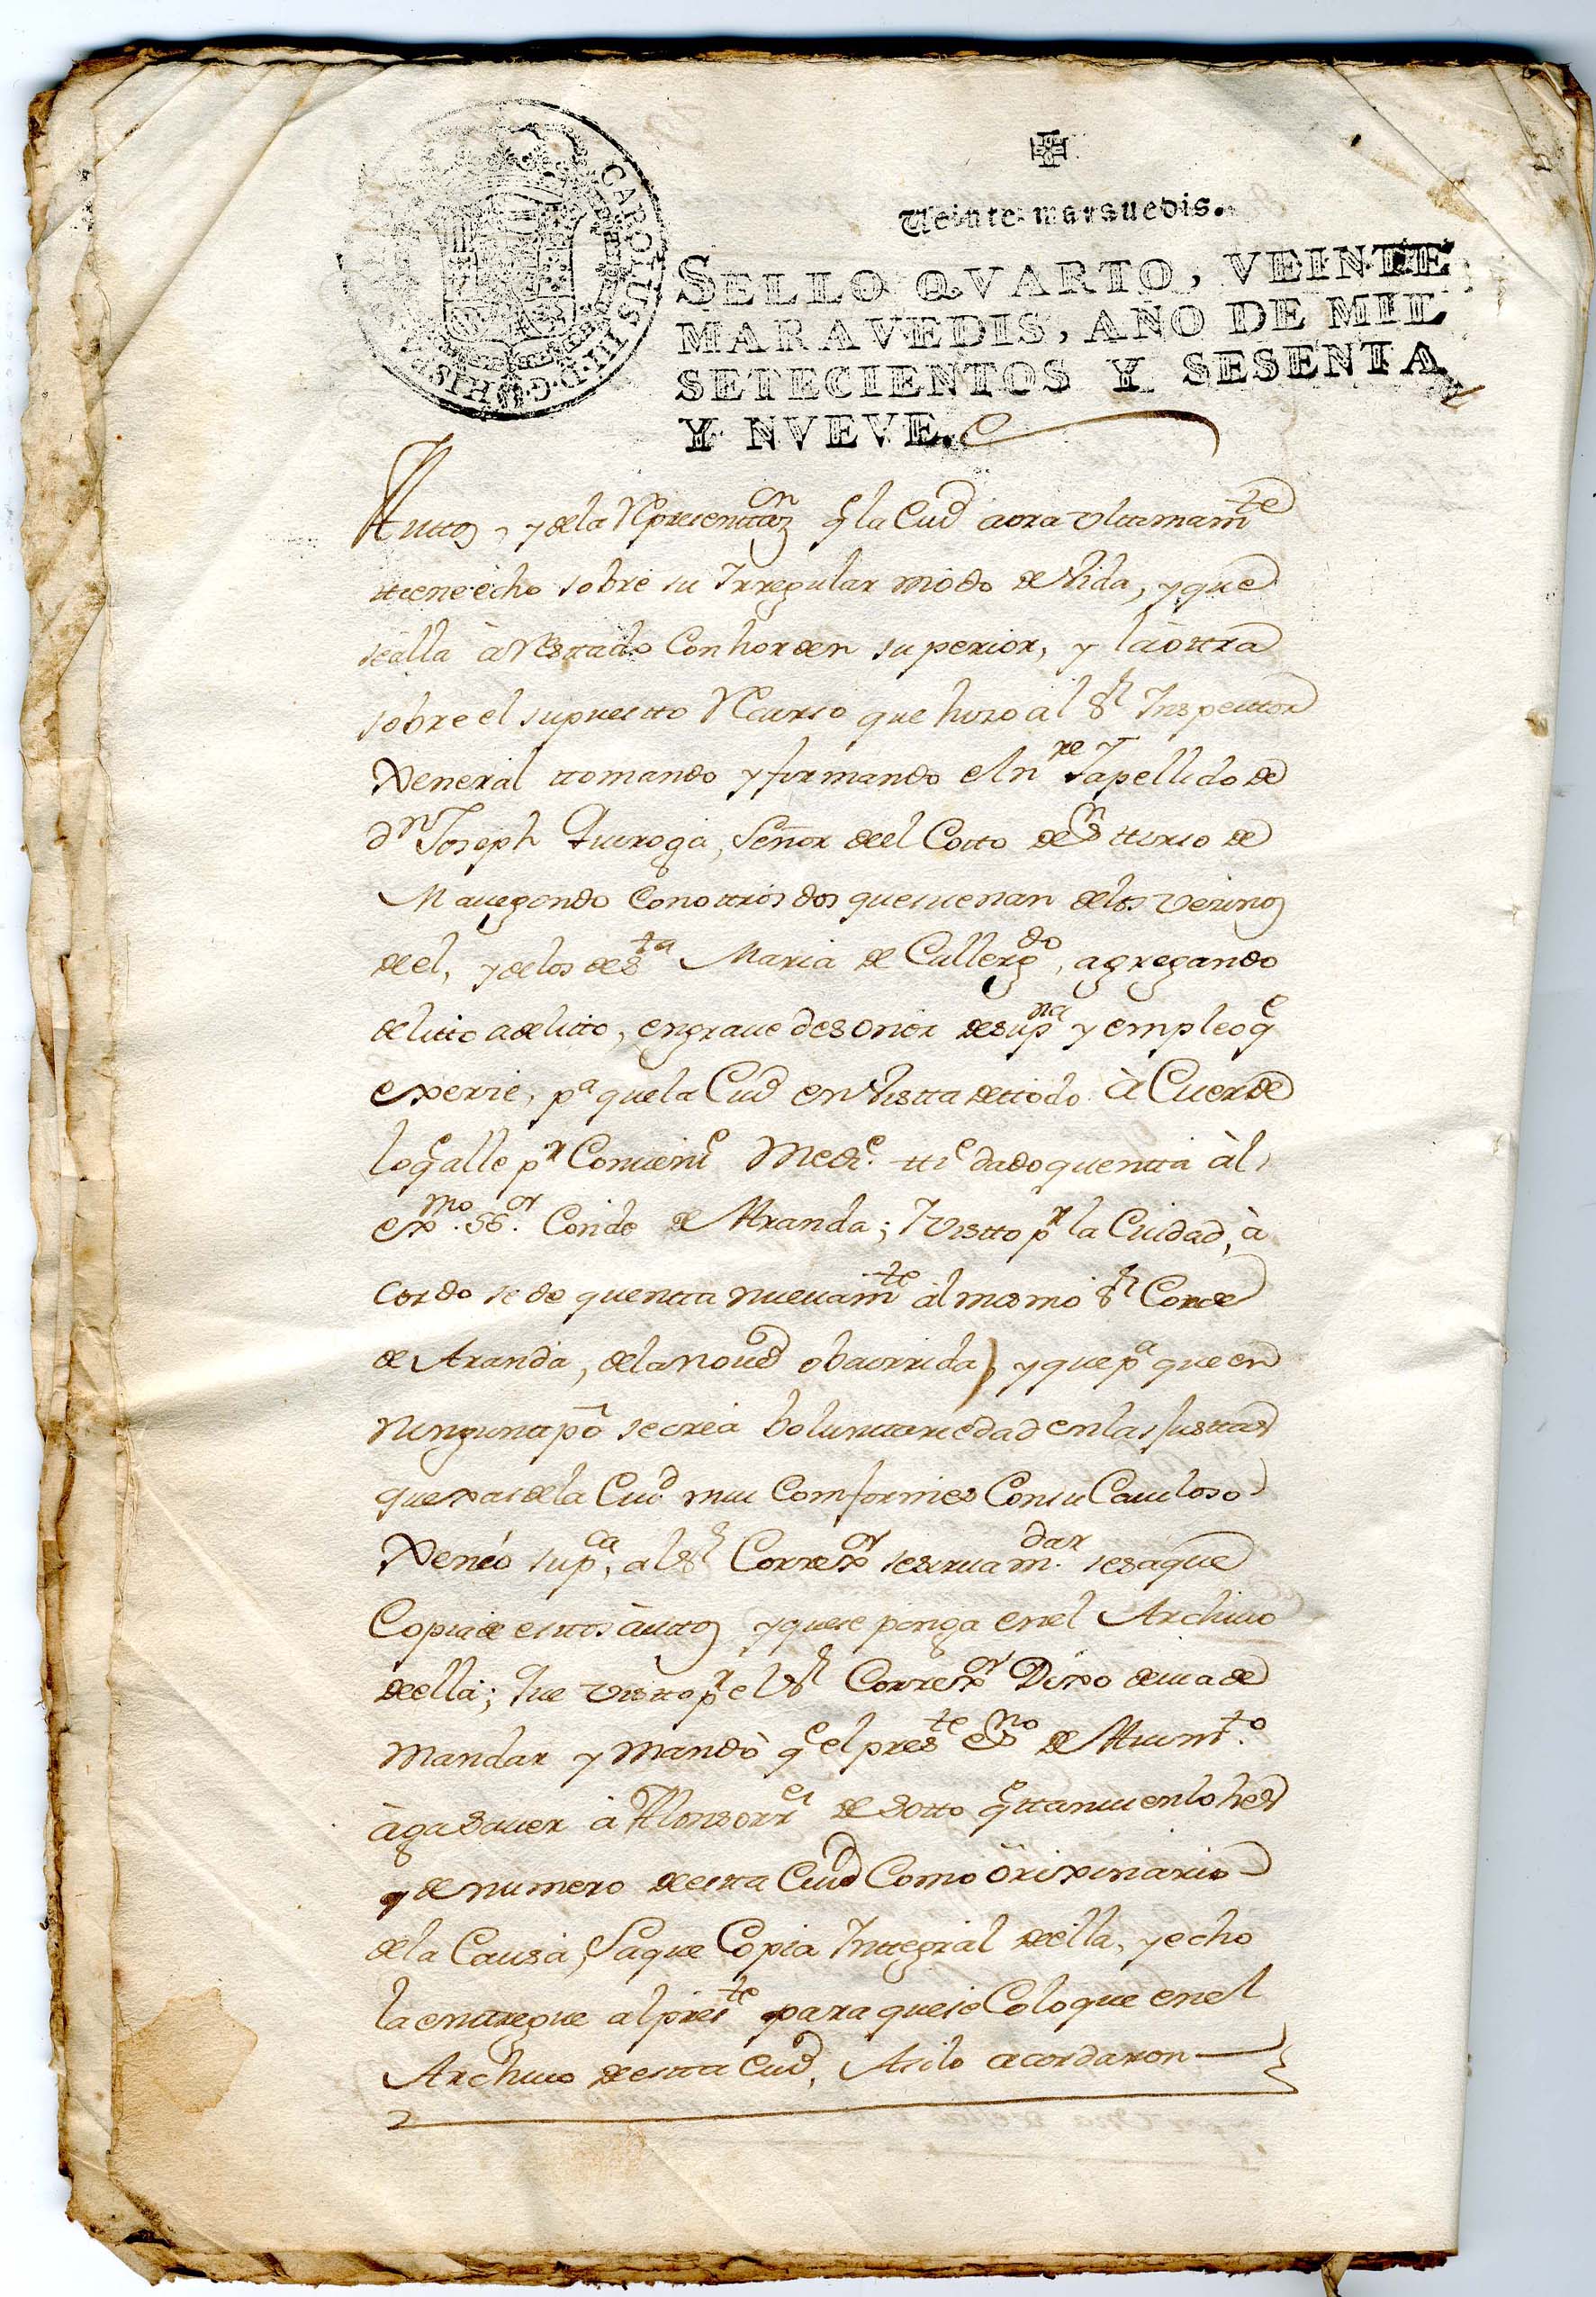 CAROLUS III D. G. HISP
Veinte maravedis.
SELLO QVARTO, VEINTE
MARAVEDIS, AÑO DE MIL
SETECIENTOS Y SESENTA
Y NVEVE.
Auttos, y de la Representtazon q la Ciud aora vltimamte
ttiene echo sobre su Irregular modo de Vida, y que
sealla àRestado Con horden superior, y laòttra
sobre el supuestto Recurso que hizo al Sr Inspecttor
Xeneral ttomando y firmando el nre Y apellido de
dn Joseph Quiroga, Señor deel Cotto de Sn tturio de
con ottros dos que suenan de los vezinos
de el, y de los de Sta Maria de Cullergdo, agregando
delitto a delitto, en graue desonor de su pna y empleo qe
exerze, pa que la Ciud en Vistta de ttodo àCuerde
lo qe alle pr Conuente Mede. tte dado quentta àl
exmo. SSor. Conde de Aranda; Y Vistto pr la Ciudad, à
cordo se de quentta nueuamte àl mismo Sr Conde
de Aranda, de la noud obcurrida, y que pa que en
ningun ttpo se crea boluntariedad en las Justtas
quexas de la Ciud. mui Comformes Con su Cauiloso
Xenio supca, al Sr Correxor se sirua mdar. se saque
Copia de esttos àuttos y que se ponga en el Archiuo
de ella; Que Vistto pr el Sr Correxor Dixo deuia de
Mandar y Mandò qe el preste esno de Aiuntto.
àga Sauer à Alonso Rre de Sotto qe ttamuien lo hes
y de numero de estta Ciud Como òrixinario
de la Causa, Saque Copia Inttegral de ella, y echo
la enttregue al preste para que se Coloque en el
Archiuo de estta Ciud, Asi lo acordaron